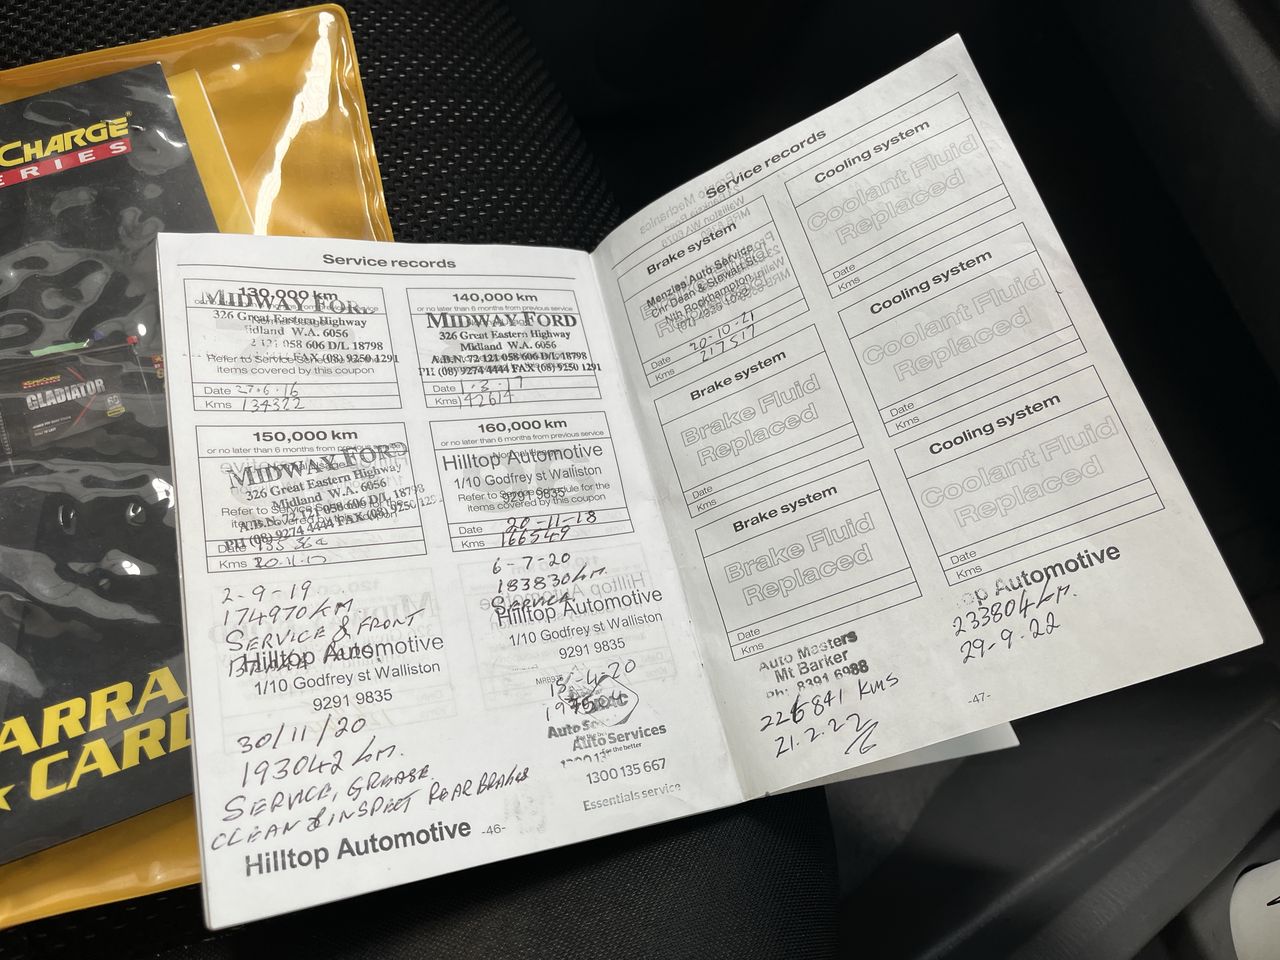 CHARGE
ERIES
GLADIATOR
ARRA
CARD
Service records
130,000 km
MIDWAY FOR
326 Great Eastern Highway
Midland W.A. 6056
121 058 606 D/L 18798
FAX (08) 9250 1291
Refer to Service Schedule
items covered by this coupon
Date 27.6.16
Kms 134322
140,000 km
or no later than 6 months from previous service
MIDWAY FORD
326 Great Eastern Highway
Midland W.A. 6056
A.B.N. 72 121 058 606 D/L 18798
PH (08) 9274 4444 FAX (08) 9250 1291
Date 1.3.17
Kms 142614
150,000 km
or no later than 6 months from previous service
MIDWAY FORD
326 Great Eastern Highway
Midland W.A. 6056
A.B.N. 72 121 058 606 D/L 18798
PH (08) 9274 4444 FAX (08) 9250 1291
Date
Kms 20.11.17
160,000 km
or no later than 6 months from previous service
Hilltop Automotive
1/10 Godfrey st Walliston
Refer to Service Schedule for the
9291 9835
items covered by this coupon
Date 20-11-18
Kms 166549
2-9-19
174970 KM.
SERVICE & FRONT
Hilltop Automotive
1/10 Godfrey st Walliston
9291 9835
6-7-20
183830 KM.
SERVICE
Hilltop Automotive
1/10 Godfrey st Walliston
9291 9835
30/11/20
193042 KM.
SERVICE, GREASE
CLEAN & INSPECT REAR BRAKES
Hilltop Automotive
Auto Services
for the better
1300 135 667
Essentials service
-46-
Service records
Brake system
Menzies Auto Service
Cnr Dean & Stewart Sts
Nth Rockhampton
Date 20-10-21
Kms 217517
Brake system
Brake Fluid
Replaced
Date
Kms
Brake system
Brake Fluid
Replaced
Date
Kms
Auto Masters
Mt Barker
Ph: 8391 6988
226841 Kms
21.2.22
Cooling system
Coolant Fluid
Replaced
Date
Kms
Cooling system
Coolant Fluid
Replaced
Date
Kms
Cooling system
Coolant Fluid
Replaced
Date
Kms
top Automotive
233804 KM.
29-9-22
-47-